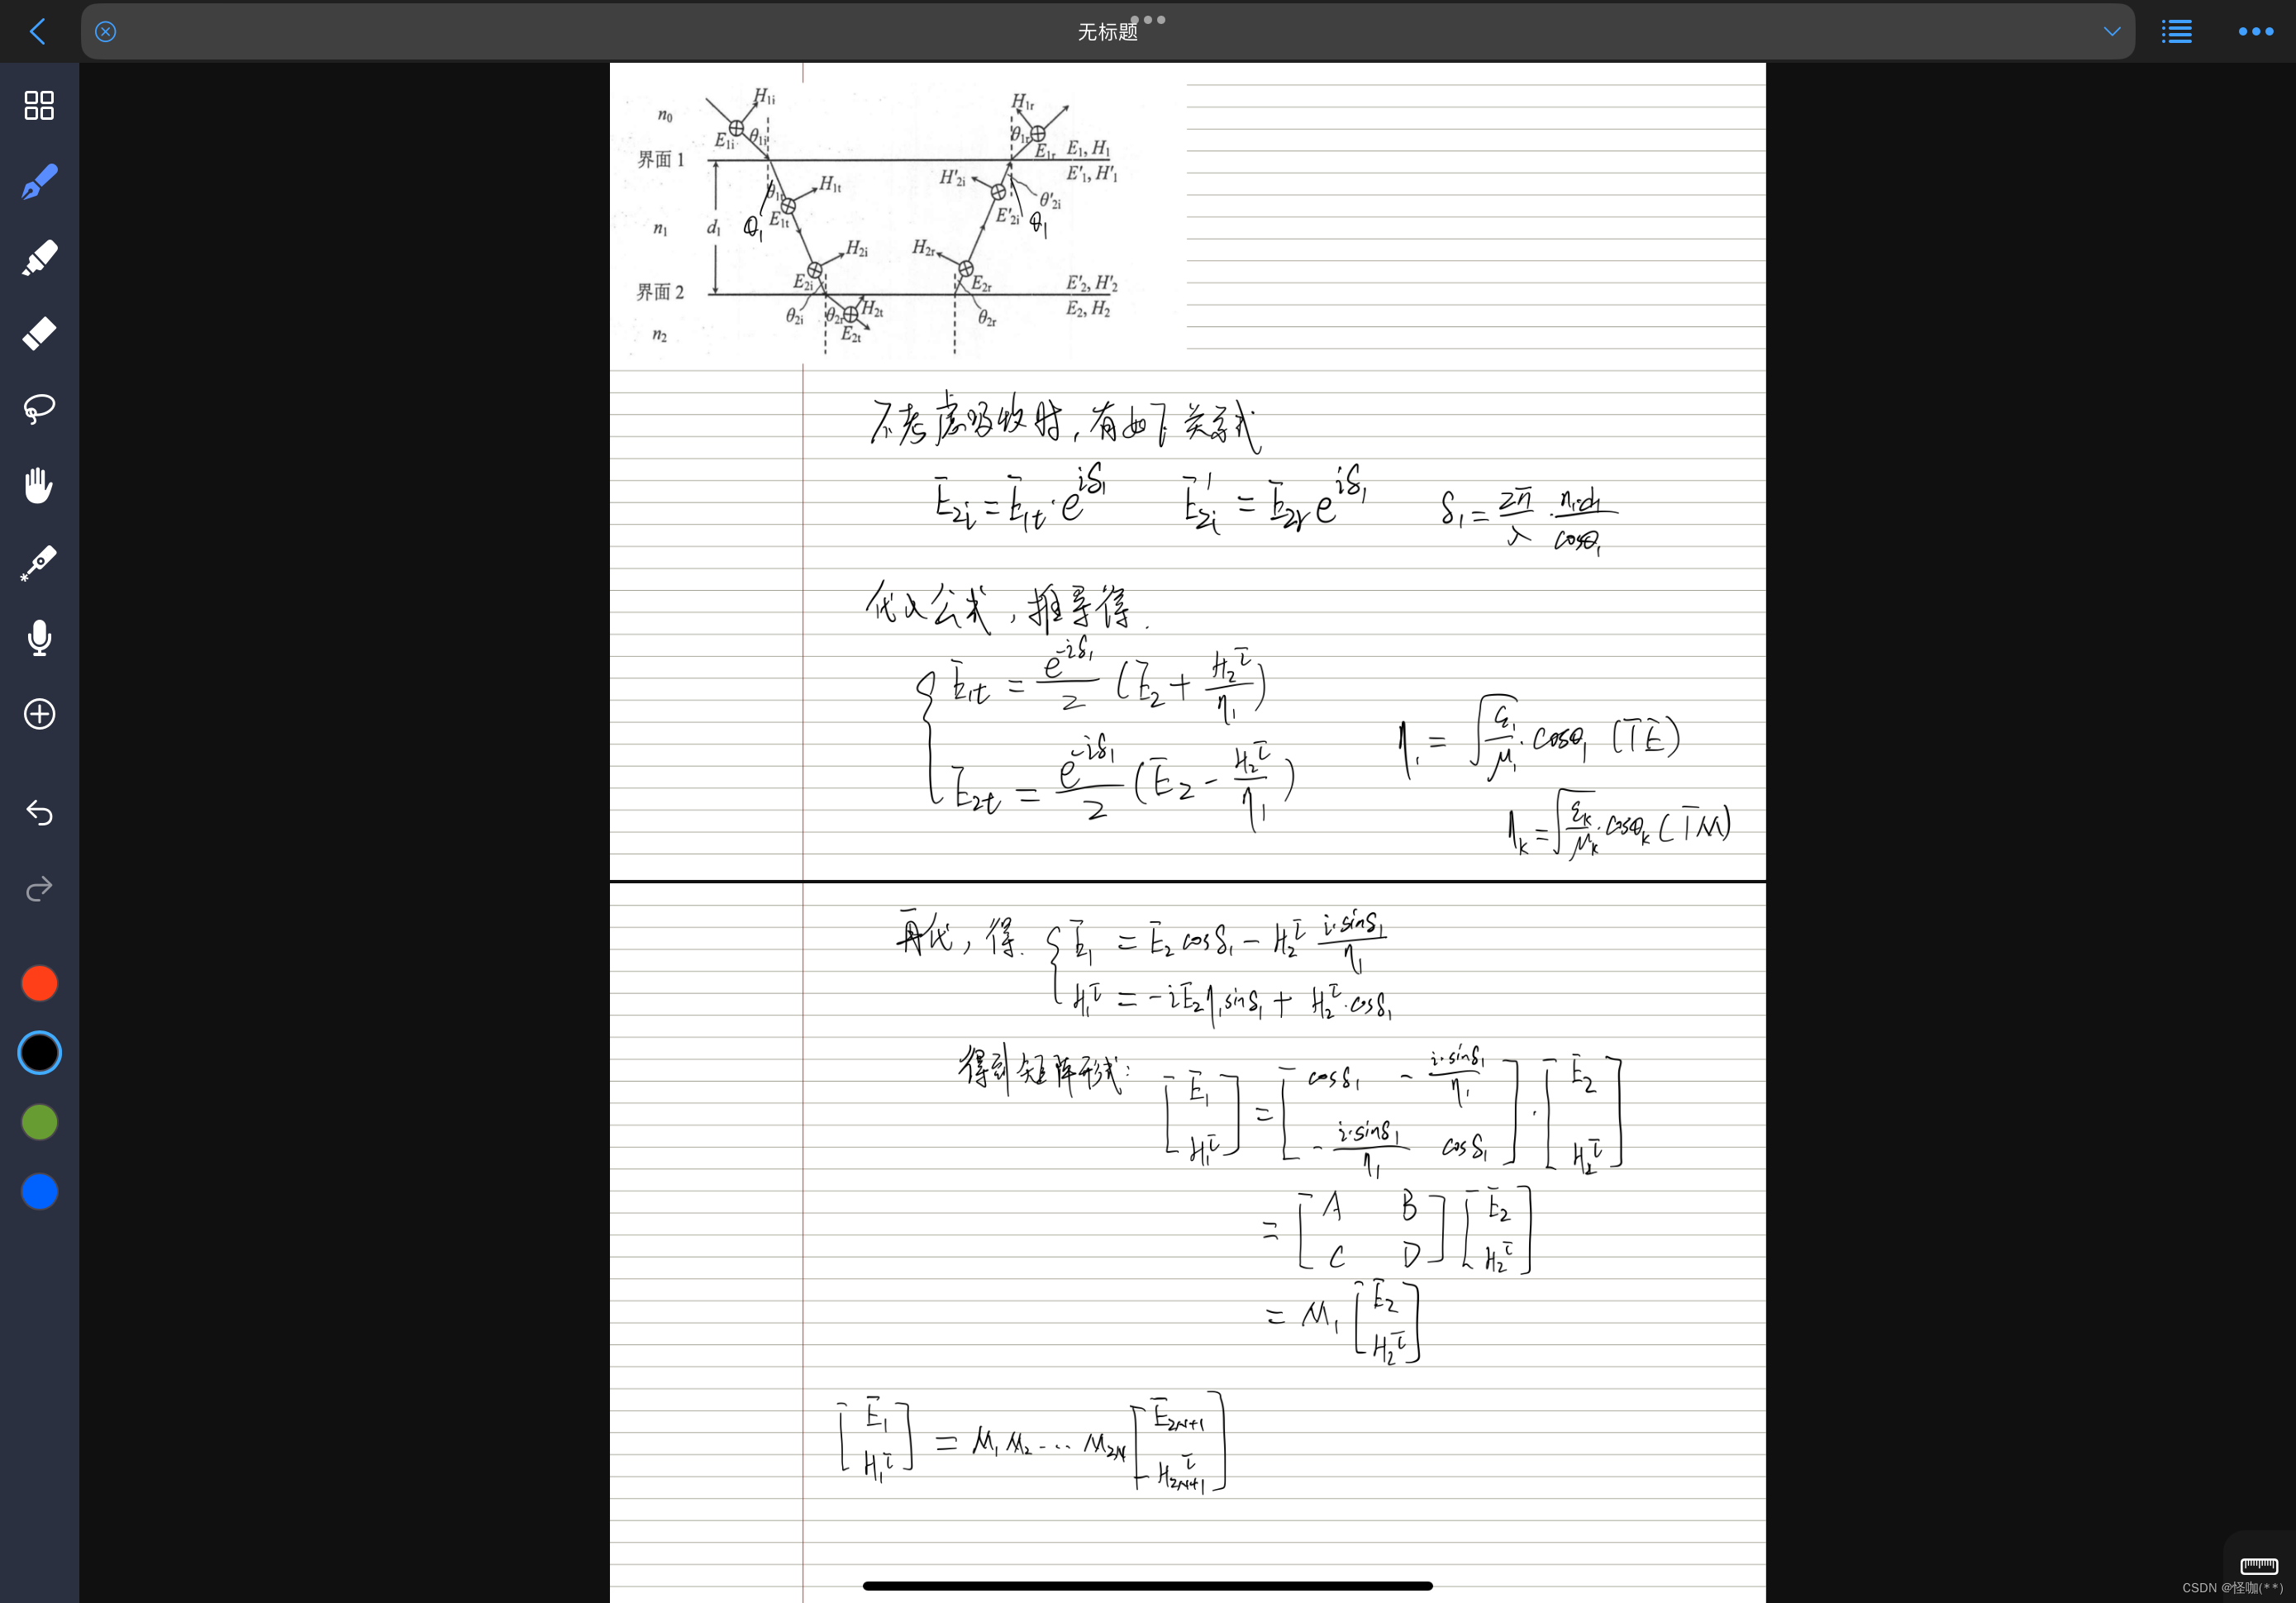 无标题
n₀
H₁ᵢ
E₁ᵢ
θ₁ᵢ
H₁ᵣ
θ₁ᵣ
E₁ᵣ
E₁, H₁
界面 1
E'₁, H'₁
θ₁ₜ
H₁ₜ
E₁ₜ
θ₁
H'₂ᵢ
E'₂ᵢ
θ'₂ᵢ
θ₁
n₁
d₁
H₂ᵢ
E₂ᵢ
H₂ᵣ
E₂ᵣ
E'₂, H'₂
界面 2
E₂, H₂
θ₂ᵢ
θ₂ₜ
H₂ₜ
E₂ₜ
θ₂ᵣ
n₂
不考虑吸收时,有如下关系式
E₂ᵢ = E₁ₜ · e^{iδ₁} E₂ᵢ' = E₂ᵣ e^{iδ₁} δ₁ = 2π/λ · n₁d₁/cosθ₁
代入公式,推导得.
E₁ₜ = e^{-iδ₁}/2 (E₂ + H₂^τ/η₁)
η₁ = √(ε₁/μ₁) · cosθ₁ (TE)
E₂ₜ = e^{-iδ₁}/2 (E₂ - H₂^τ/η₁)
ηₖ = √(εₖ/μₖ) · cosθₖ (TM)
再代,得. E₁ = E₂ cosδ₁ - H₂^τ i·sinδ₁/η₁
H₁^τ = -iE₂η₁sinδ₁ + H₂^τ·cosδ₁
得到矩阵形式: [E₁ H₁^τ] = [cosδ₁ -i·sinδ₁/η₁ -i·sinδ₁/η₁ cosδ₁] · [E₂ H₂^τ]
= [A B C D] [E₂ H₂^τ]
= M₁ [E₂ H₂^τ]
[E₁ H₁^τ] = M₁ M₂ ··· M₂N [E₂N+1 H₂N+1^τ]
CSDN @怪咖(**)